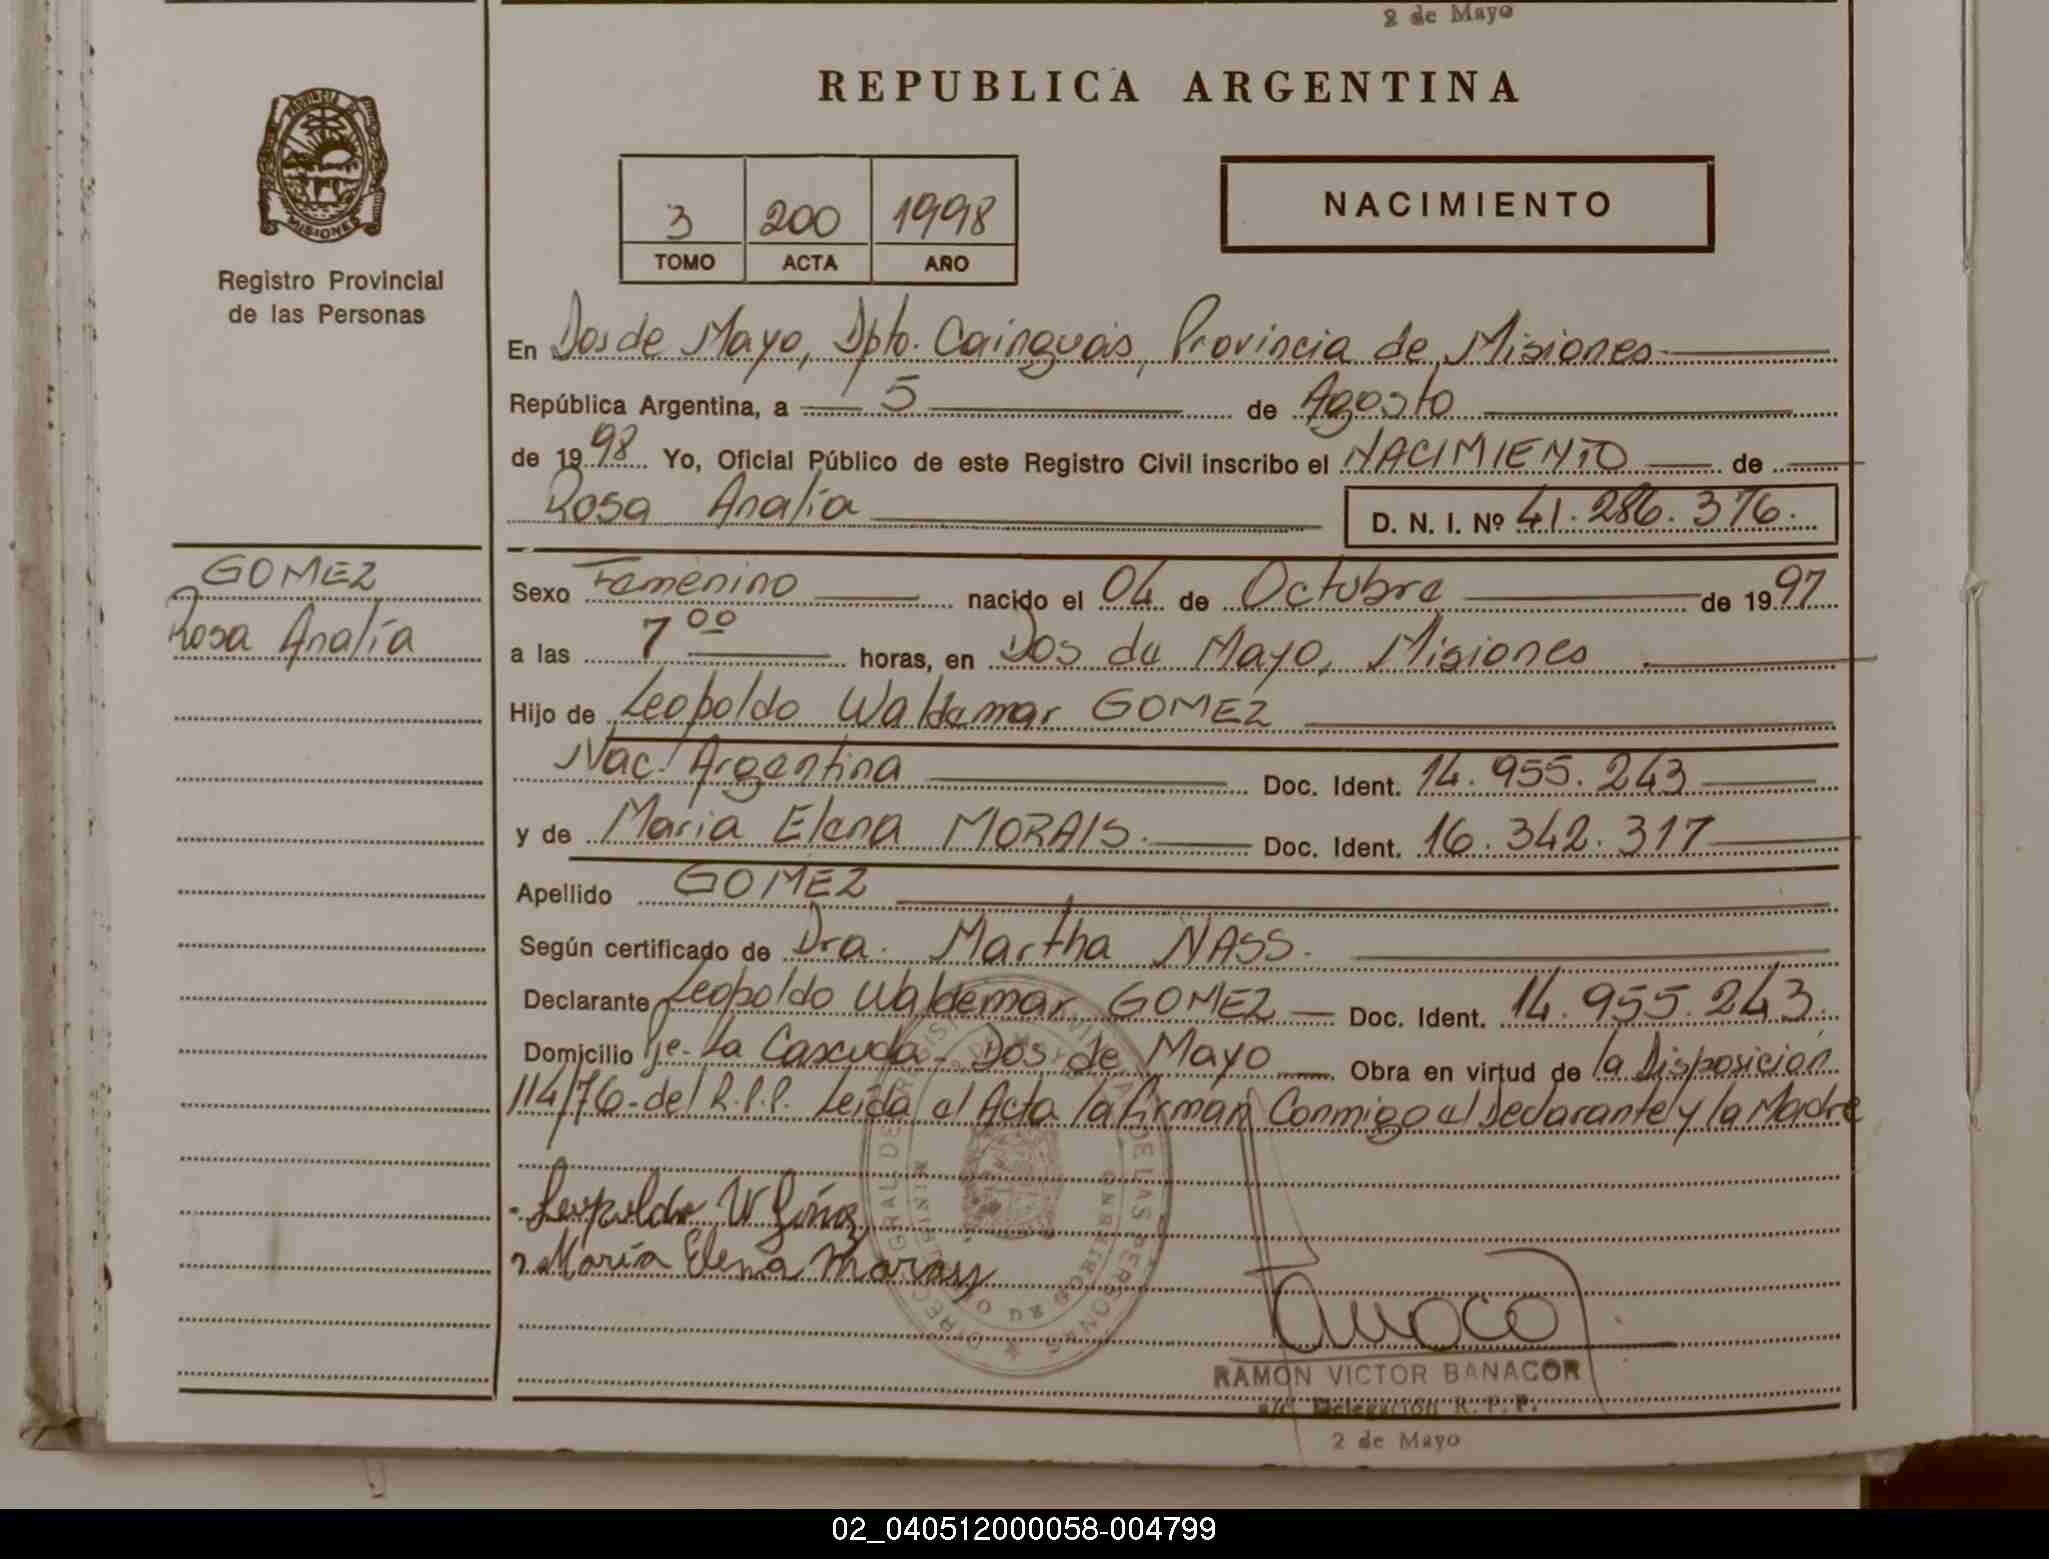 2 de Mayo
REPUBLICA ARGENTINA
PROVINCIA DE
MISIONES
Registro Provincial
de las Personas
3 200 1998
TOMO ACTA AÑO
NACIMIENTO
En Dos de Mayo, Dpto. Cainguás, Provincia de Misiones
República Argentina, a 5 de Agosto
de 1998 Yo, Oficial Público de este Registro Civil inscribo el NACIMIENTO de
Rosa Analía D. N. I. Nº 41.286.376.
GOMEZ
Rosa Analía
Sexo Femenino nacido el 04 de Octubre de 1997
a las 7 00 horas, en Dos de Mayo, Misiones
Hijo de Leopoldo Waldemar GOMEZ
Nac. Argentina Doc. Ident. 14.955.243
y de Maria Elena MORAIS. Doc. Ident. 16.342.317
Apellido GOMEZ
Según certificado de Dra. Martha NASS.
Declarante Leopoldo Waldemar GOMEZ Doc. Ident. 14.955.243.
Domicilio La Dos de Mayo Obra en virtud de la Disposición
114/76 del R.P.P. Leída el Acta la firman Conmigo el Declarante y la Madre
Leopoldo W Gómez
María Elena Morais
RAMON VICTOR BANACOR
a/c Delegación R. P. P.
2 de Mayo
02_040512000058-004799